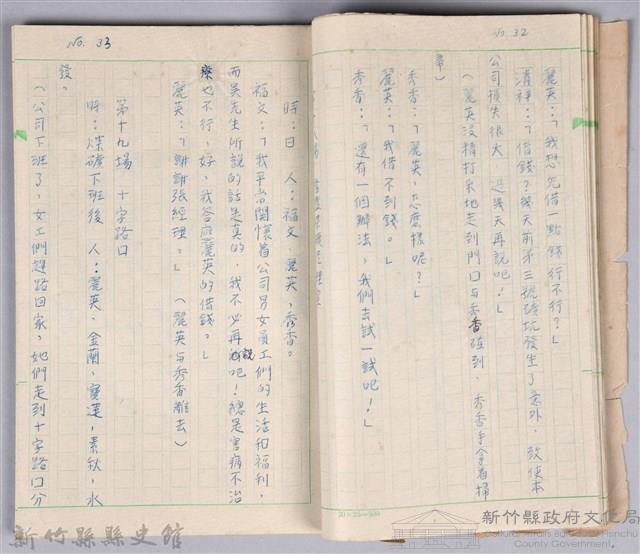 No. 32
麗英：「我想先借一點錢行不行？」
清祥：「借錢？幾天前第三號礦坑發生了意外，致使本
公司損失很大，過幾天再說吧！」
（麗英沒精打采地走到門口与秀香碰到，秀香手拿着掃
帚）
秀香：「麗英，怎麼樣呢？」
麗英：「我借不到錢。」
秀香：「還有一個辦法，我們去試一試吧！」
20×25=500
No. 33
時：日 人：福文，麗英，秀香。
福文：「我平常関懷着公司男女員工們的生活和福利，
而吳先生所說的話是真的，我不必再說吧！總是害病不治
療也不行，好，我答應麗英的借錢。」
麗英：「謝謝張經理。」 （麗英与秀香離去）
第十九場 十字路口
時：煤礦下班後 人：麗英，金蘭，寶蓮，素秋，水
發。
（公司下班了，女工們趕路回家，她們走到十字路口分
新竹縣縣史館
新竹縣政府文化局
Cultural Affairs Bureau of Hsinchu
County Government